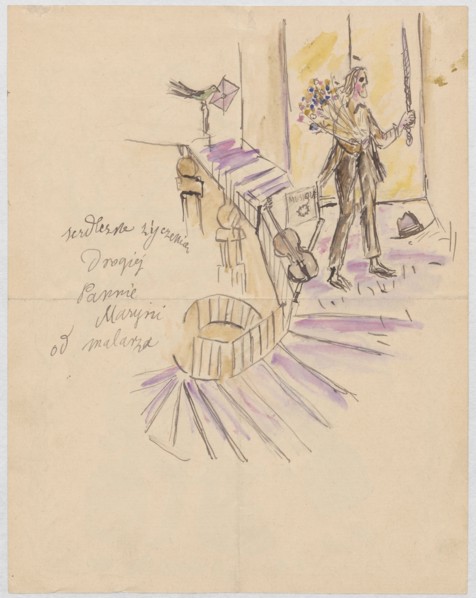 serdeczne życzenia
Drogiej
Pannie
Maryni
od malarza